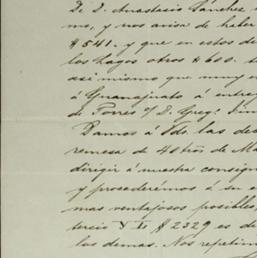 De D. Anastasio Sánchez
mo, y nos avisa de haber
$541. y que en estos de
los Lagos otros $600.
así mismo que muy en
á Guanajuato á entreg
de Torres D. Greg.
Damos á Uds. las de
remesa de 40 de Ma
dirigir á nuestra consign
y procederémos á su e
mas ventajosos posibles
tercio $2329 es de
los demas. Nos repetim